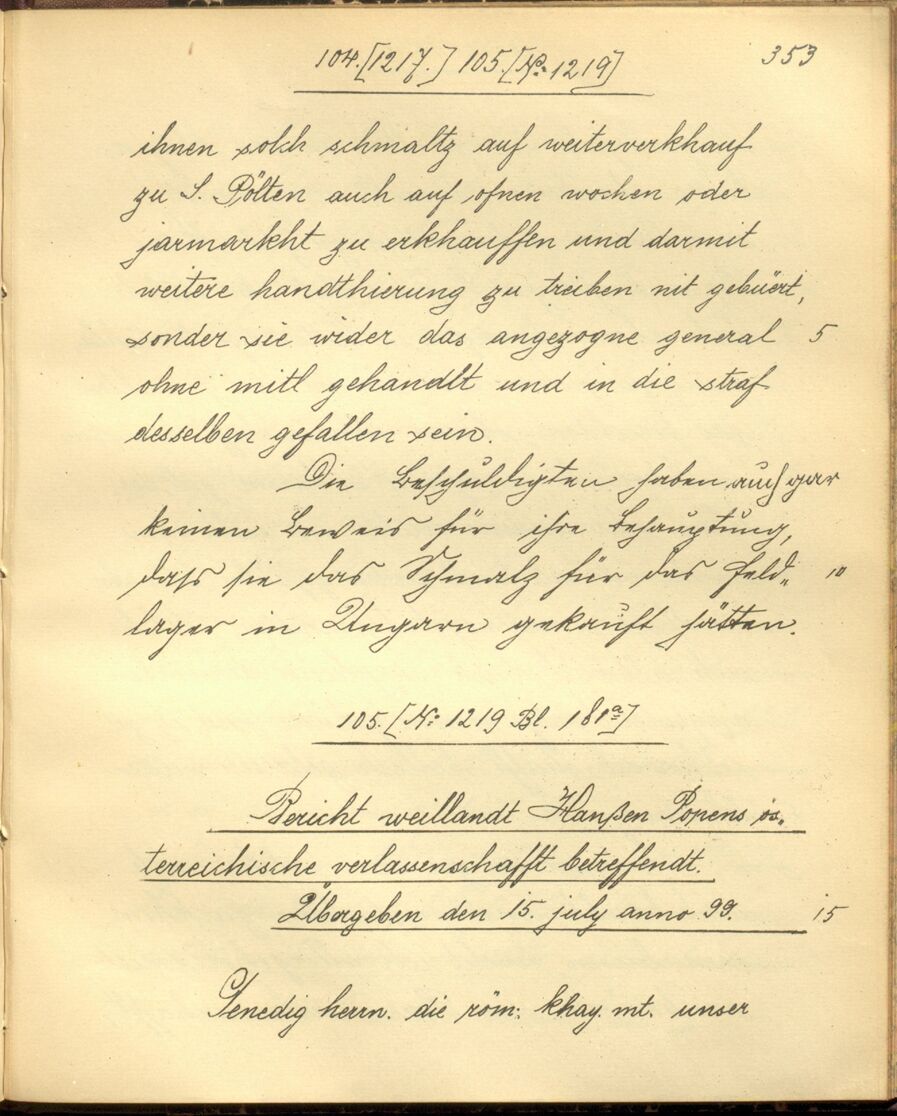 104.[1217.] 105.[No 1219] 353
ihnen solch schmaltz auf weiterverkhauf
zu S. Pölten auch auf ofnen wochen oder
jarmarkht zu erkhauffen und darmit
weitere handthierung zu treiben nit gebüert,
sonder sie wider das angezogne general 5
ohne mitl gehandlt und in die straf
desselben gefallen sein.
Die Beschuldigten haben auch gar
keinen Beweis für ihre Behauptung,
dass sie das Schmalz für das Feld„ 10
lager in Ungarn gekauft hätten.
105. [No 1219 Bl. 181a]
Bericht weillandt Hanßen Popens ös„
terreichische verlassenschafft betreffendt.
Übergeben den 15. july anno 99. 15
Genedig herrn. die röm: khay. mt. unser